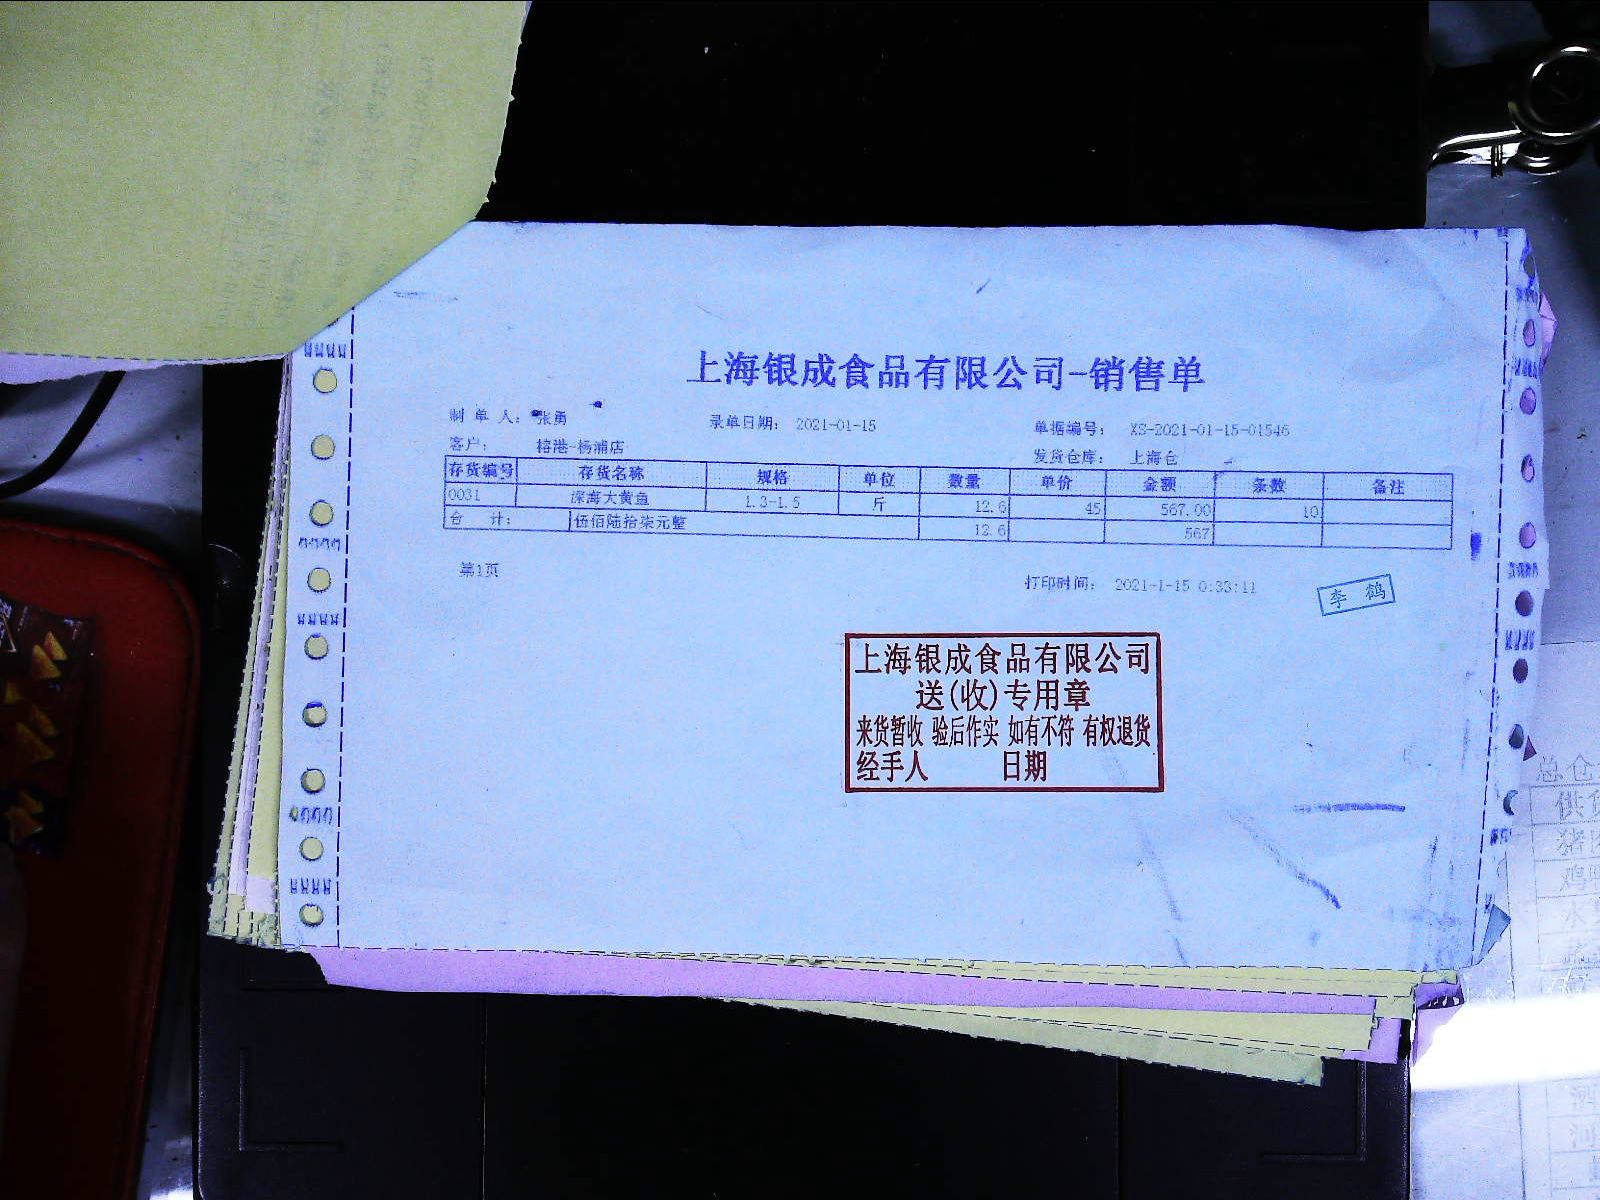 上海银成食品有限公司-销售单
制 单 人： 张勇 录单日期： 2021-01-15 单据编号： XS-2021-01-15-01546
客户： 榕港-杨浦店 发货仓库： 上海仓
存货编号 存货名称 规格 单位 数量 单价 金额 条数 备注
0031 深海大黄鱼 1.3-1.5 斤 12.6 45 567.00 10
合 计： 伍佰陆拾柒元整 12.6 567
第1页 打印时间： 2021-1-15 0:33:11
李 鹤
上海银成食品有限公司
送(收)专用章
来货暂收 验后作实 如有不符 有权退货
经手人 日期
总仓
供
猪
鸡
水